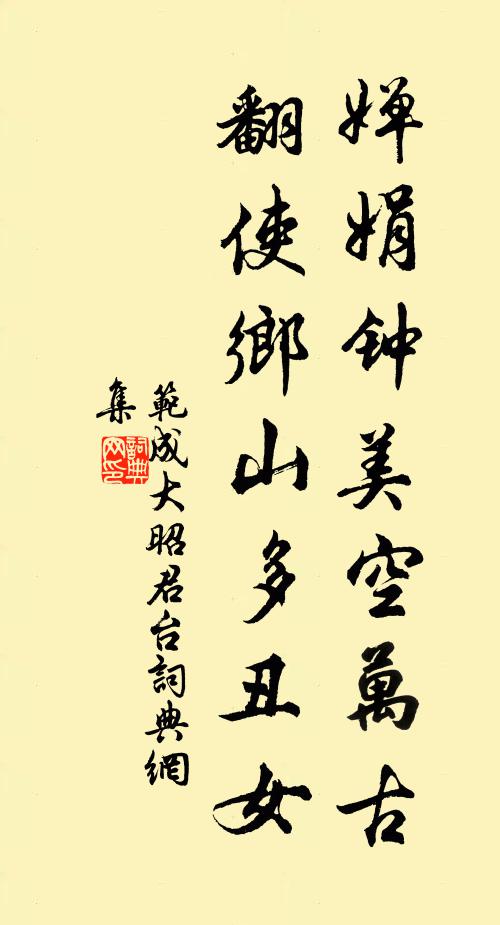 婵娟钟美空萬古
翻使鄉山多丑女
範成大昭君台詞典網
集
詞典网印